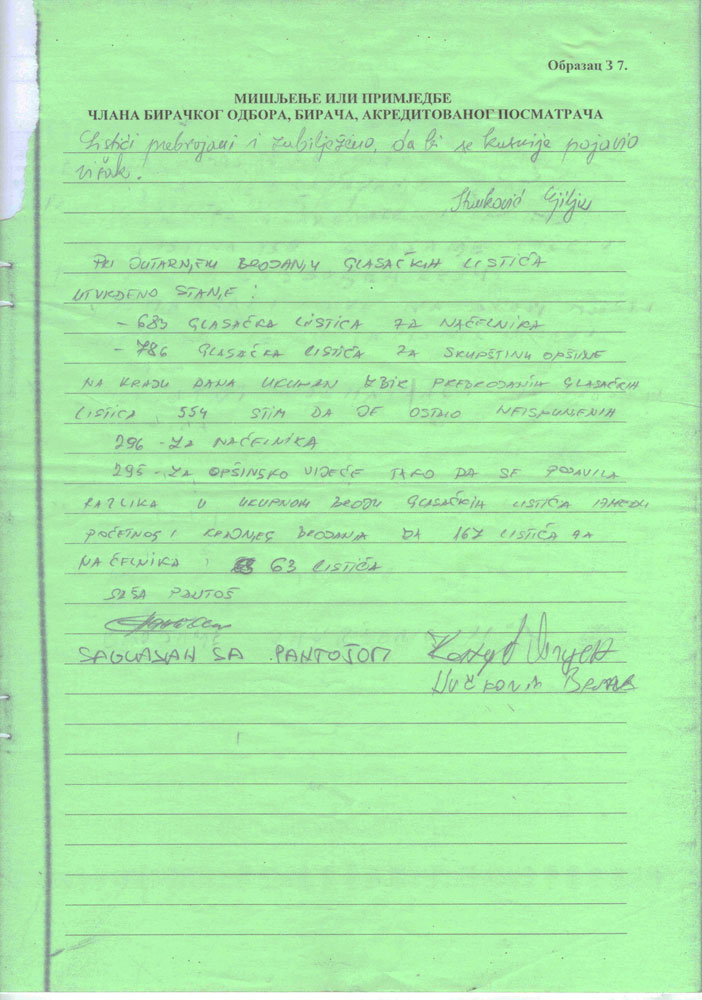 Образац З 7.
МИШЉЕЊЕ ИЛИ ПРИМЈЕДБЕ
ЧЛАНА БИРАЧКОГ ОДБОРА, БИРАЧА, АКРЕДИТОВАНОГ ПОСМАТРАЧА
Listići prebrojani i zabilježeno, da bi se kasnije pojavio
višak.
PRI JUTARNJEM BROJANJU GLASAČKIH LISTIĆA
UTVRĐENO STANJE:
- 683 GLASAČKA LISTIĆA ZA NAČELNIKA
- 786 GLASAČKA LISTIĆA ZA SKUPŠTINU OPŠTINE
NA KRAJU DANA UKUPAN ZBIR PREBROJANIH GLASAČKIH
LISTIĆA 554 STIM DA JE OSTALO NEISPUNJENIH
296 - ZA NAČELNIKA
295 - ZA OPŠINSKO VIJEĆE TAKO DA SE POJAVILA
RAZLIKA U UKUPNOM BROJU GLASAČKIH LISTIĆA IZMEĐU
POČETNOG I KRAJNJEG BROJANJA ZA 167 LISTIĆA ZA
NAČELNIKA I 63 LISTIĆA
SAŠA PANTOŠ
SAGLASAN SA PANTOŠOM